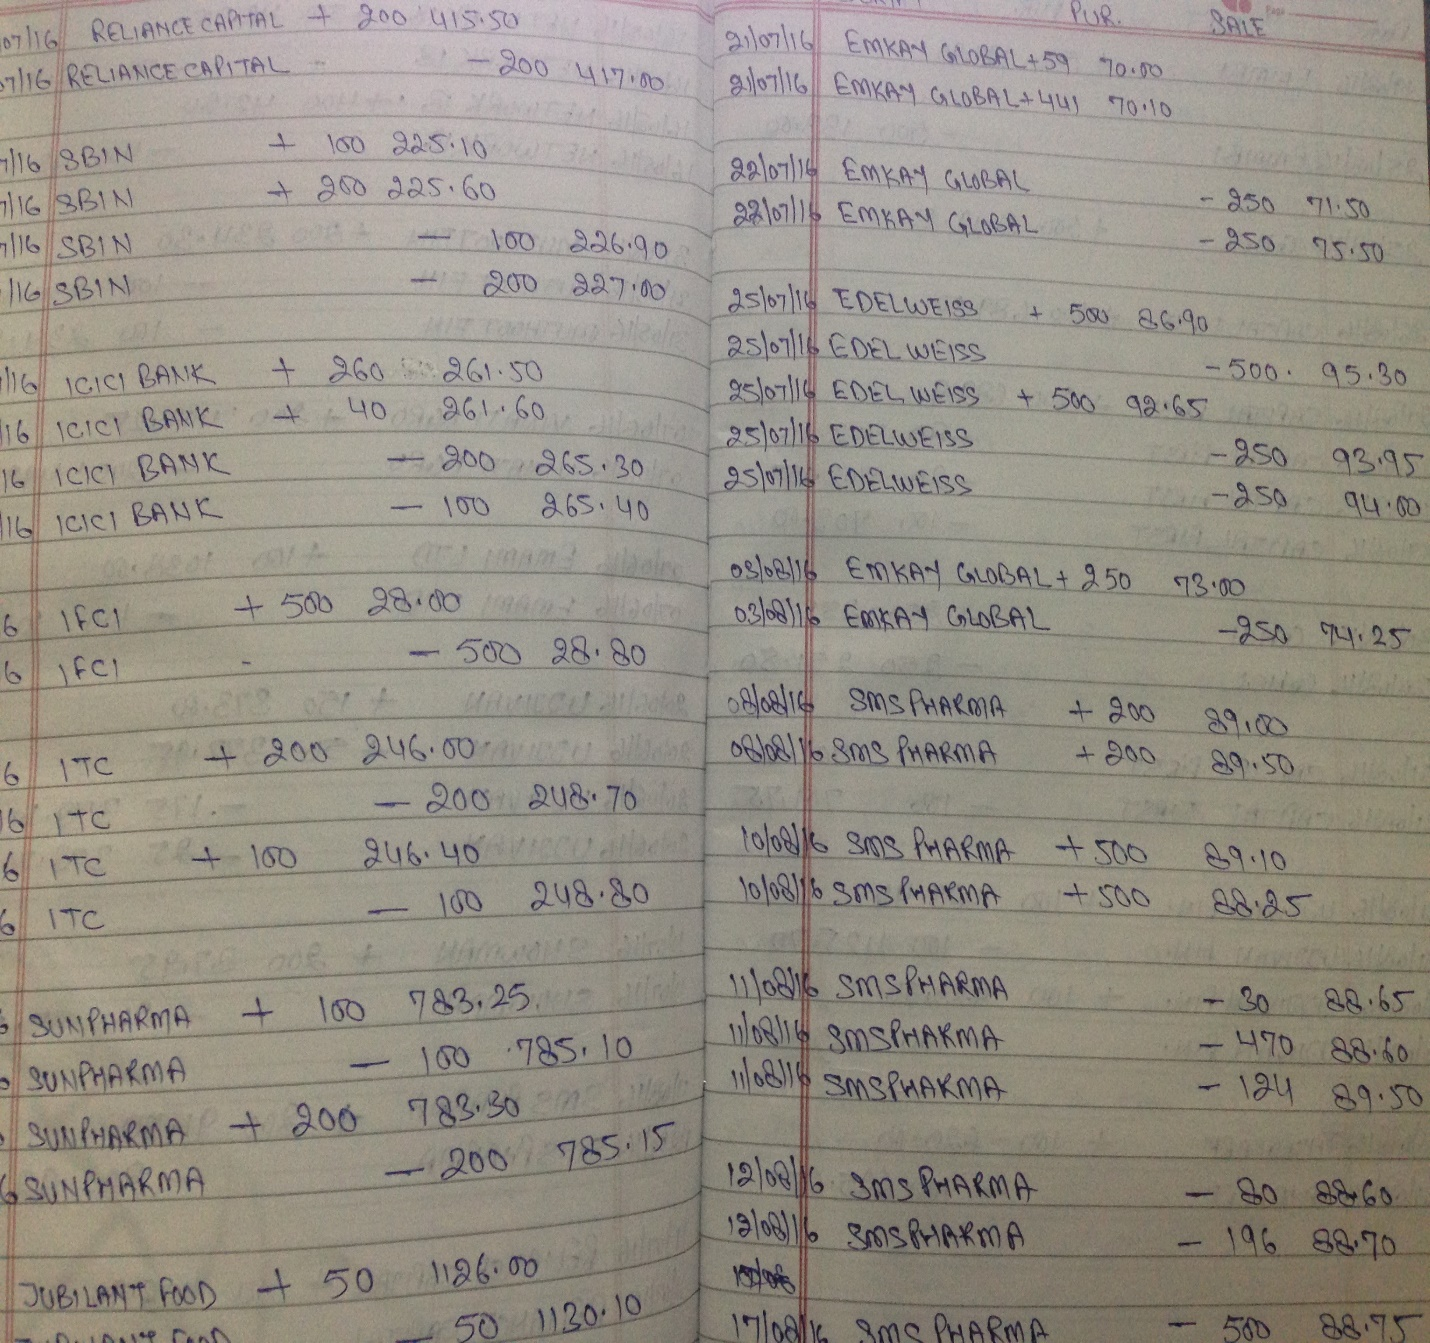 07/16 RELIANCE CAPITAL + 200 415.50
07/16 RELIANCE CAPITAL - 200 417.00
7/16 SBIN + 100 225.10
7/16 SBIN + 200 225.60
7/16 SBIN - 100 226.90
/16 SBIN - 200 227.00
/16 ICICI BANK + 260 261.50
16 ICICI BANK + 40 261.60
16 ICICI BANK - 200 265.30
16 ICICI BANK - 100 265.40
6 IFCI + 500 28.00
6 IFCI - 500 28.80
6 ITC + 200 246.00
16 ITC - 200 248.70
6 ITC + 100 246.40
6 ITC - 100 248.80
SUNPHARMA + 100 783.25
SUNPHARMA - 100 785.10
SUNPHARMA + 200 783.30
6 SUNPHARMA - 200 785.15
JUBILANT FOOD + 50 1126.00
JUBILANT FOOD - 50 1130.10
PUR. SALE
21/07/16 EMKAY GLOBAL + 59 70.00
21/07/16 EMKAY GLOBAL + 441 70.10
22/07/16 EMKAY GLOBAL - 250 71.50
22/07/16 EMKAY GLOBAL - 250 75.50
25/07/16 EDELWEISS + 500 86.90
25/07/16 EDELWEISS - 500. 95.30
25/07/16 EDELWEISS + 500 92.65
25/07/16 EDELWEISS - 250 93.95
25/07/16 EDELWEISS - 250 94.00
03/08/16 EMKAY GLOBAL + 250 73.00
03/08/16 EMKAY GLOBAL - 250 74.25
08/08/16 SMS PHARMA + 200 89.00
08/08/16 SMS PHARMA + 200 89.50
10/08/16 SMS PHARMA + 500 89.10
10/08/16 SMS PHARMA + 500 88.25
11/08/16 SMS PHARMA - 30 88.65
11/08/16 SMS PHARMA - 470 88.60
11/08/16 SMS PHARMA - 124 89.50
12/08/16 SMS PHARMA - 80 88.60
12/08/16 SMS PHARMA - 196 88.70
17/08/16 SMS PHARMA - 500 88.75